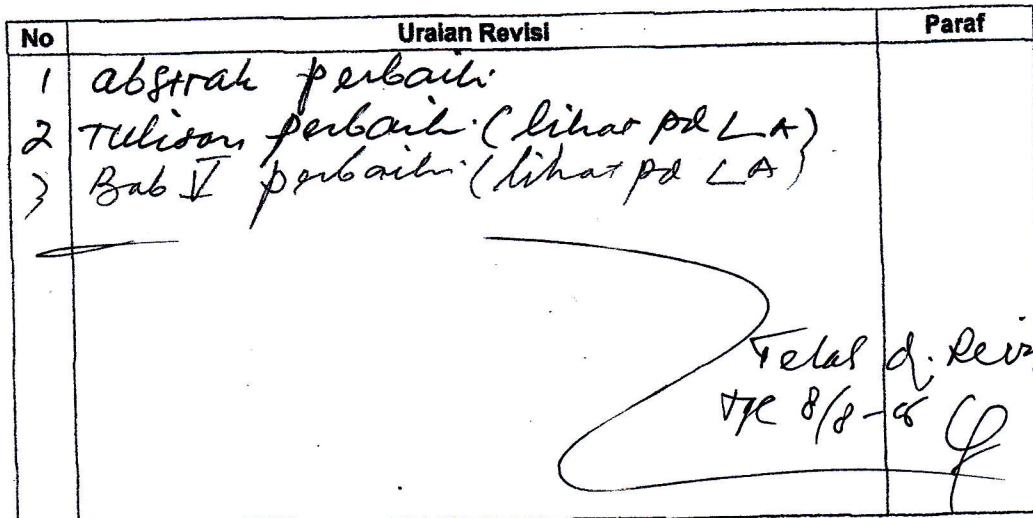 No Uraian Revisi Paraf
1 abstrak perbaiki
2 Tulisan perbaiki (lihat pd LA)
3 Bab V perbaiki (lihat pd LA)
Telah di Revi
Tgl 8/8-